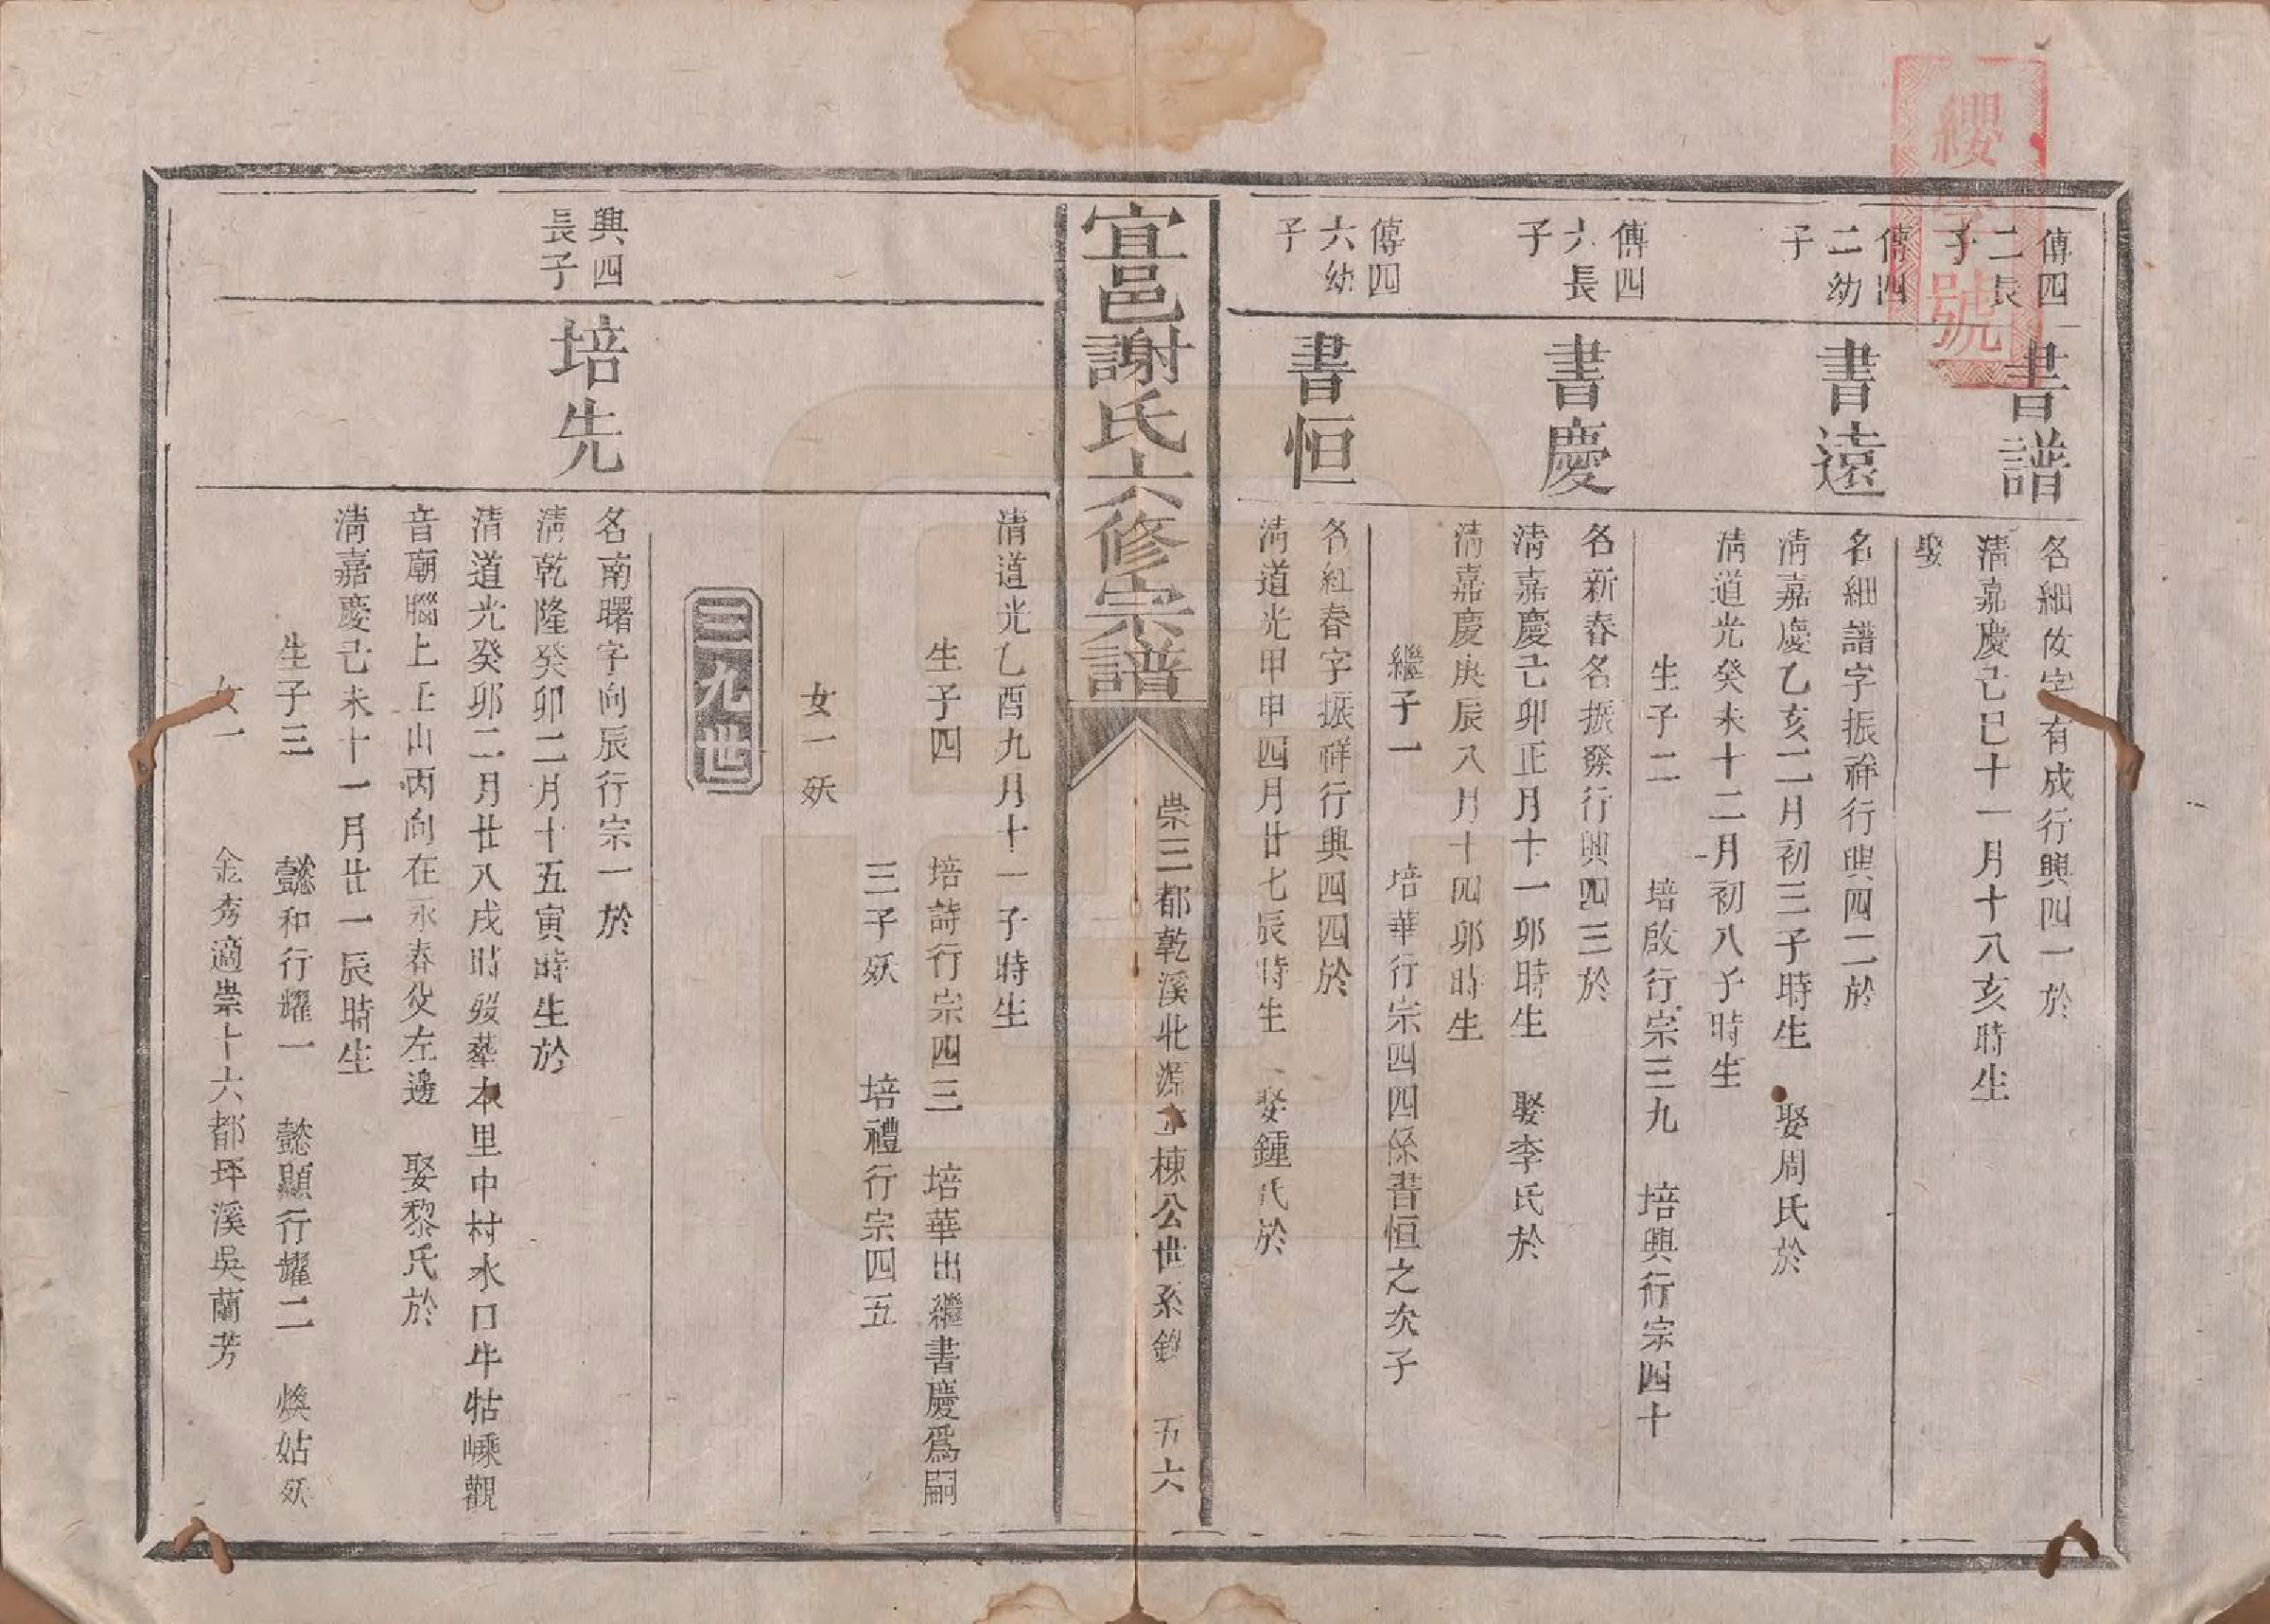 纓字號
傳四
二長
子
書譜
名細伩字有成行興四一於
淸嘉慶己巳十一月十八亥時生
娶
傳四
二幼
子
書遠
名細譜字振祥行興四二於
淸嘉慶乙亥二月初三子時生 娶周氏於
淸道光癸未十二月初八子時生
生子二 培啟行宗三九 培興行宗四十
傳四
六長
子
書慶
名新春名振發行興四三於
淸嘉慶己卯正月十一卯時生 娶李氏於
淸嘉慶庚辰八月十四卯時生
繼子一 培華行宗四四係書恒之次子
傳四
六幼
子
書恒
名紅春字振祥行興四四於
淸道光甲申四月廿七辰時生 娶鍾氏於
宜邑謝氏六修宗譜
崇三都乾溪北源 棟公世系 五六
清道光乙酉九月十一子時生
生子四 培詩行宗四三 培華出繼書慶爲嗣
三子殀 培禮行宗四五
女一殀
三九世
興四
長子
培先
名南曙字向辰行宗一於
淸乾隆癸卯二月十五寅時生於
清道光癸卯二月廿八戌時歿葬本里中村水口牛牯嵊觀
音廟腦上壬山丙向在永春父左邊 娶黎氏於
淸嘉慶己未十一月廿一辰時生
生子三 懿和行耀一 懿顯行耀二 煥姑殀
女一 金秀適崇十六都坪溪吳蘭芳